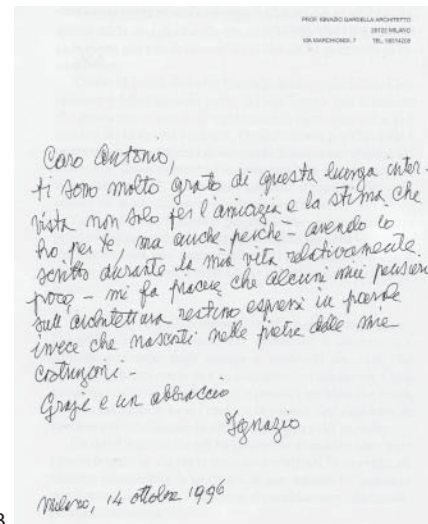 PROF. IGNAZIO GARDELLA ARCHITETTO
20122 MILANO
VIA MARCHIONDI, 7 TEL.
Caro Antonio,
ti sono molto grato di questa lunga inter-
vista non solo per l'amicizia e la stima che
ho per te, ma anche perché - avendo io
scritto durante la mia vita relativamente
poco - mi fa piacere che alcuni miei pensieri
sull'architettura restino espressi in parole
invece che nascosti nelle pietre delle mie
costruzioni -
Grazie e un abbraccio
Ignazio
Milano, 14 ottobre 1996
3